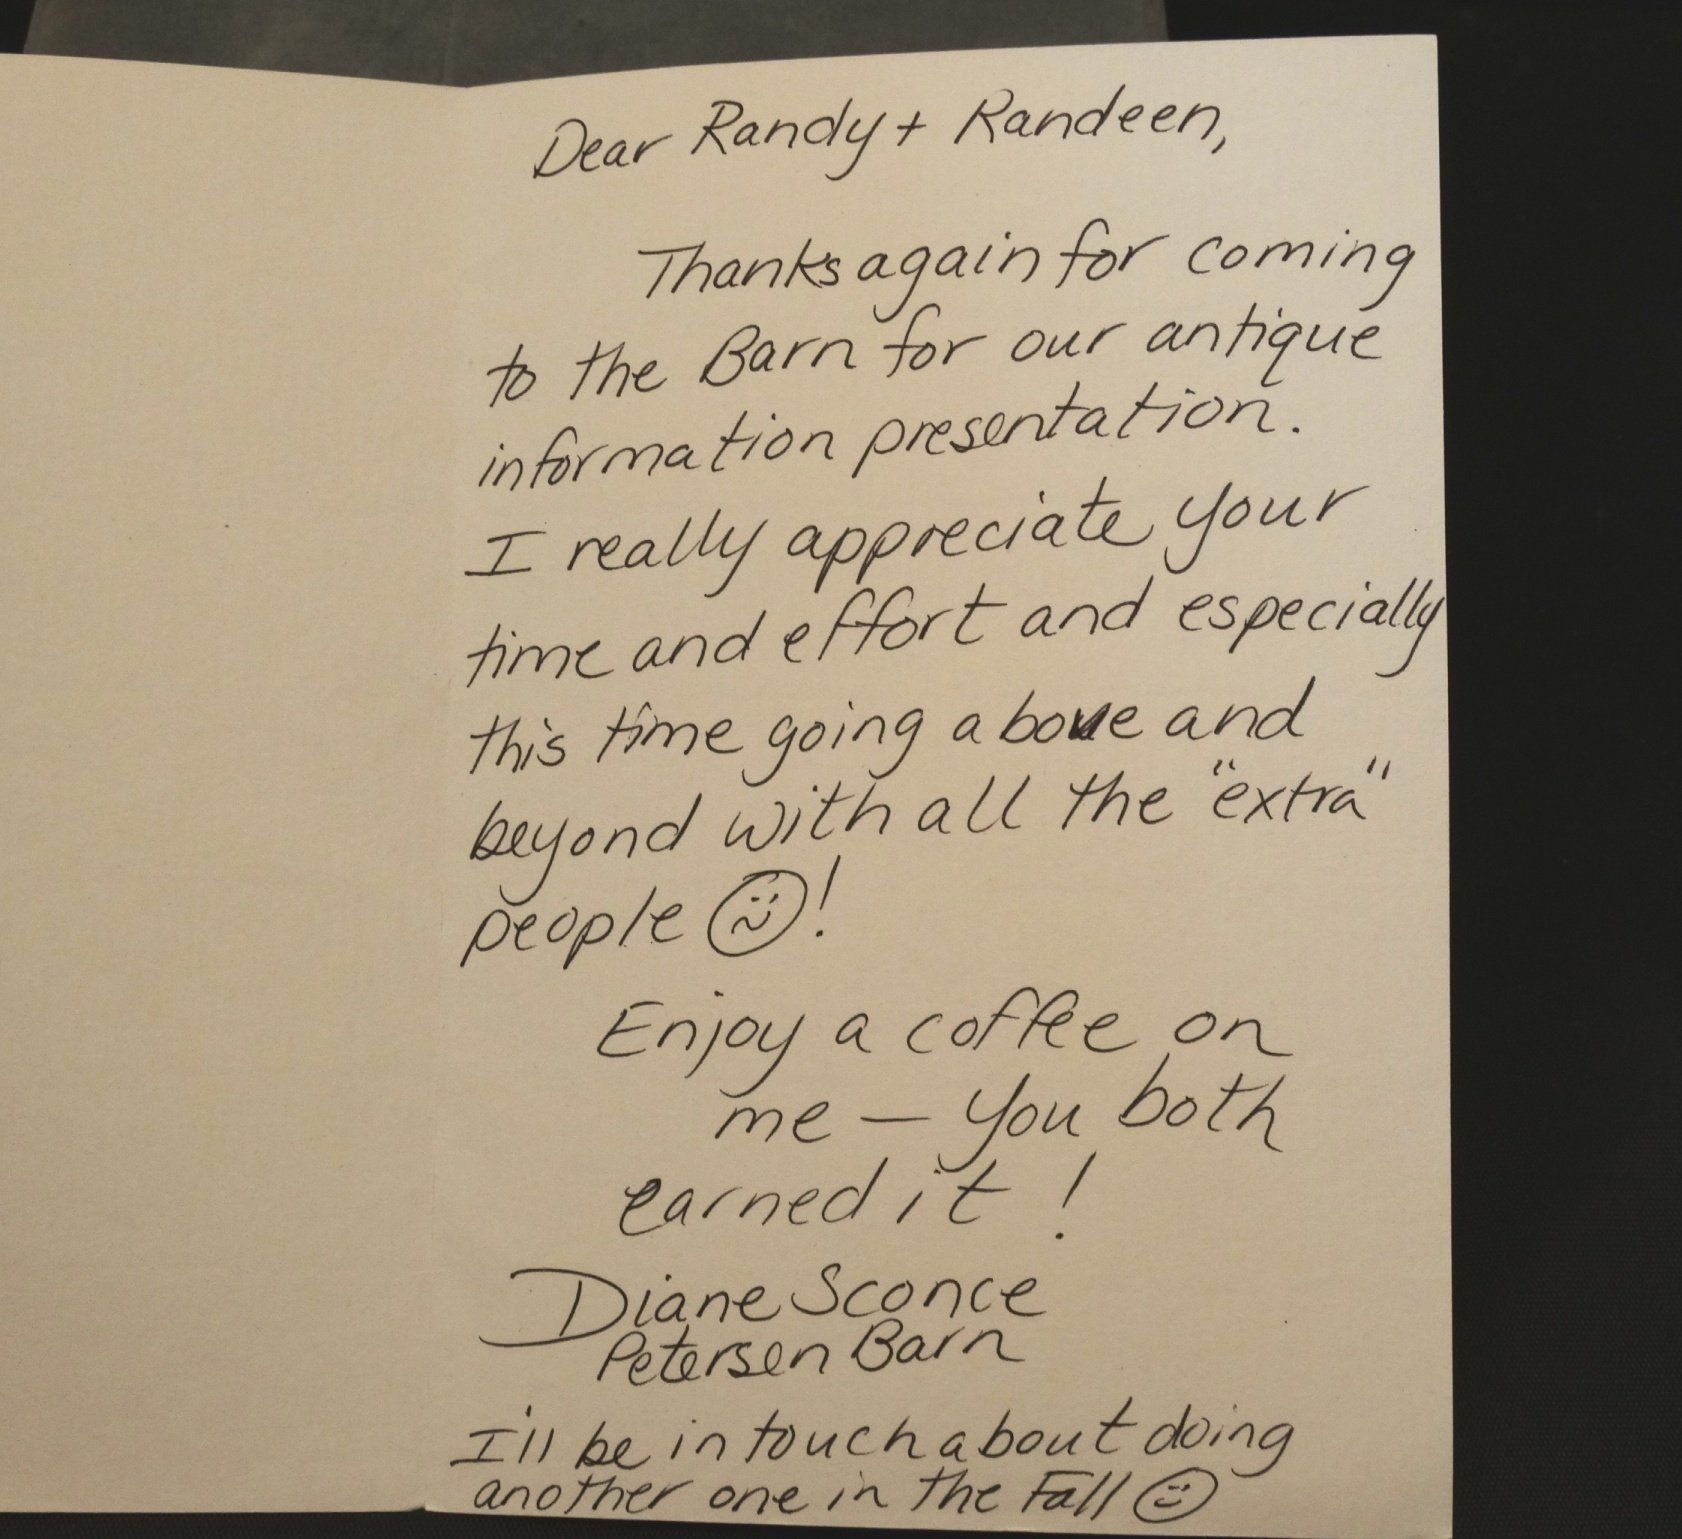 Dear Randy + Randeen,
Thanks again for coming
to the Barn for our antique
information presentation.
I really appreciate your
time and effort and especially
this time going above and
beyond with all the "extra"
people ☺!
Enjoy a coffee on
me — you both
earned it!
Diane Sconce
Petersen Barn
I'll be in touch about doing
another one in the Fall ☺